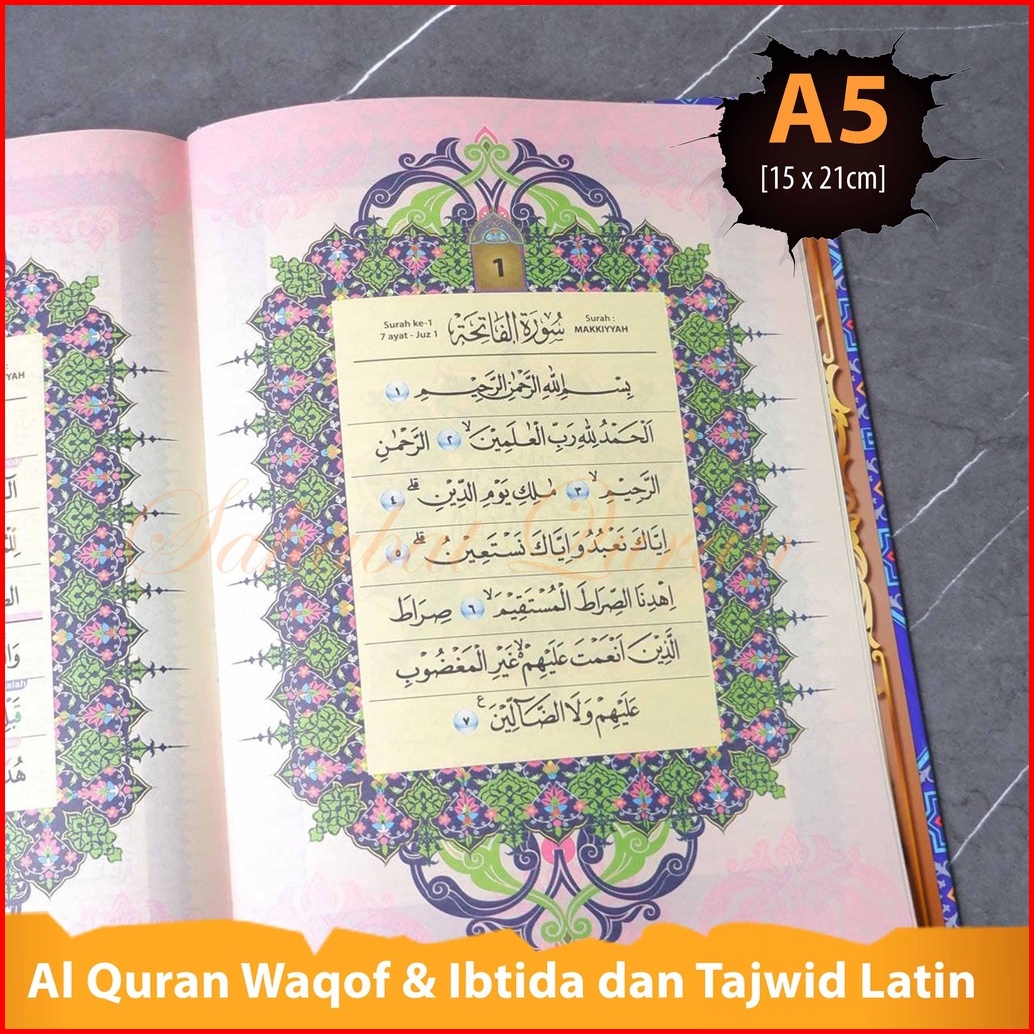 A5
[15 x 21cm]
1
Surah ke-1
7 ayat - Juz 1
سُوْرَةُ الْفَاتِحَةِ
Surah :
MAKKIYYAH
بِسْمِ اللّٰهِ الرَّحْمٰنِ الرَّحِيْمِ ١
اَلْحَمْدُ لِلّٰهِ رَبِّ الْعٰلَمِيْنَۙ ٢ الرَّحْمٰنِ
الرَّحِيْمِۙ ٣ مٰلِكِ يَوْمِ الدِّيْنِۗ ٤
اِيَّاكَ نَعْبُدُ وَاِيَّاكَ نَسْتَعِيْنُۗ ٥
اِهْدِنَا الصِّرَاطَ الْمُسْتَقِيْمَۙ ٦ صِرَاطَ
الَّذِيْنَ اَنْعَمْتَ عَلَيْهِمْ ەۙ غَيْرِ الْمَغْضُوْبِ
عَلَيْهِمْ وَلَا الضَّاۤلِّيْنَ ࣖ ٧
Sahabat Quran
Al Quran Waqof & Ibtida dan Tajwid Latin